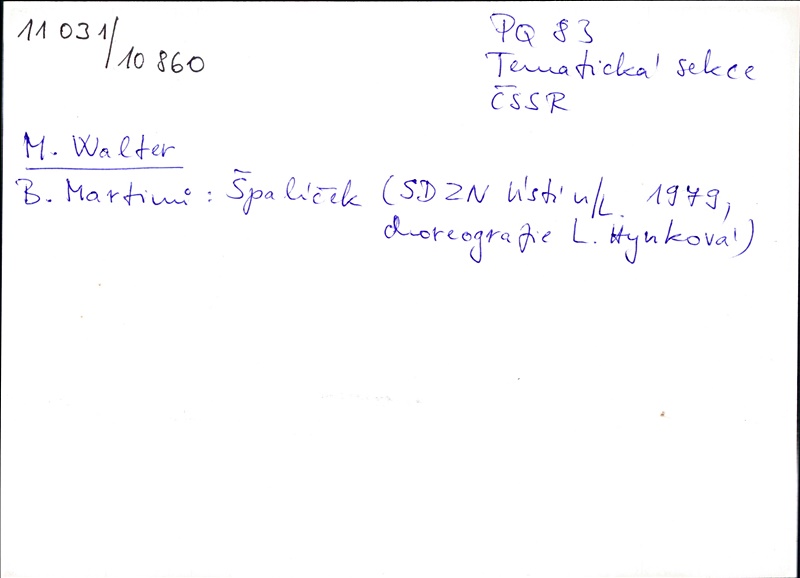 11 031/10 860
PQ 83
Tematická sekce
ČSSR
M. Walter
B. Martinů: Špalíček (SDZN Ústí n/L. 1979,
choreografie L. Hynková)